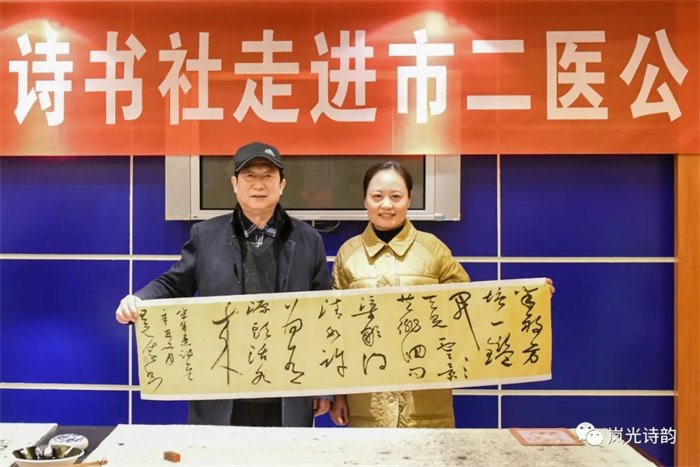 诗书社走进市二医公
半畝方
塘一鑑
開
天光雲影
共徘徊问
渠那得
清如許
為有
源頭活水
来
岚光诗韵